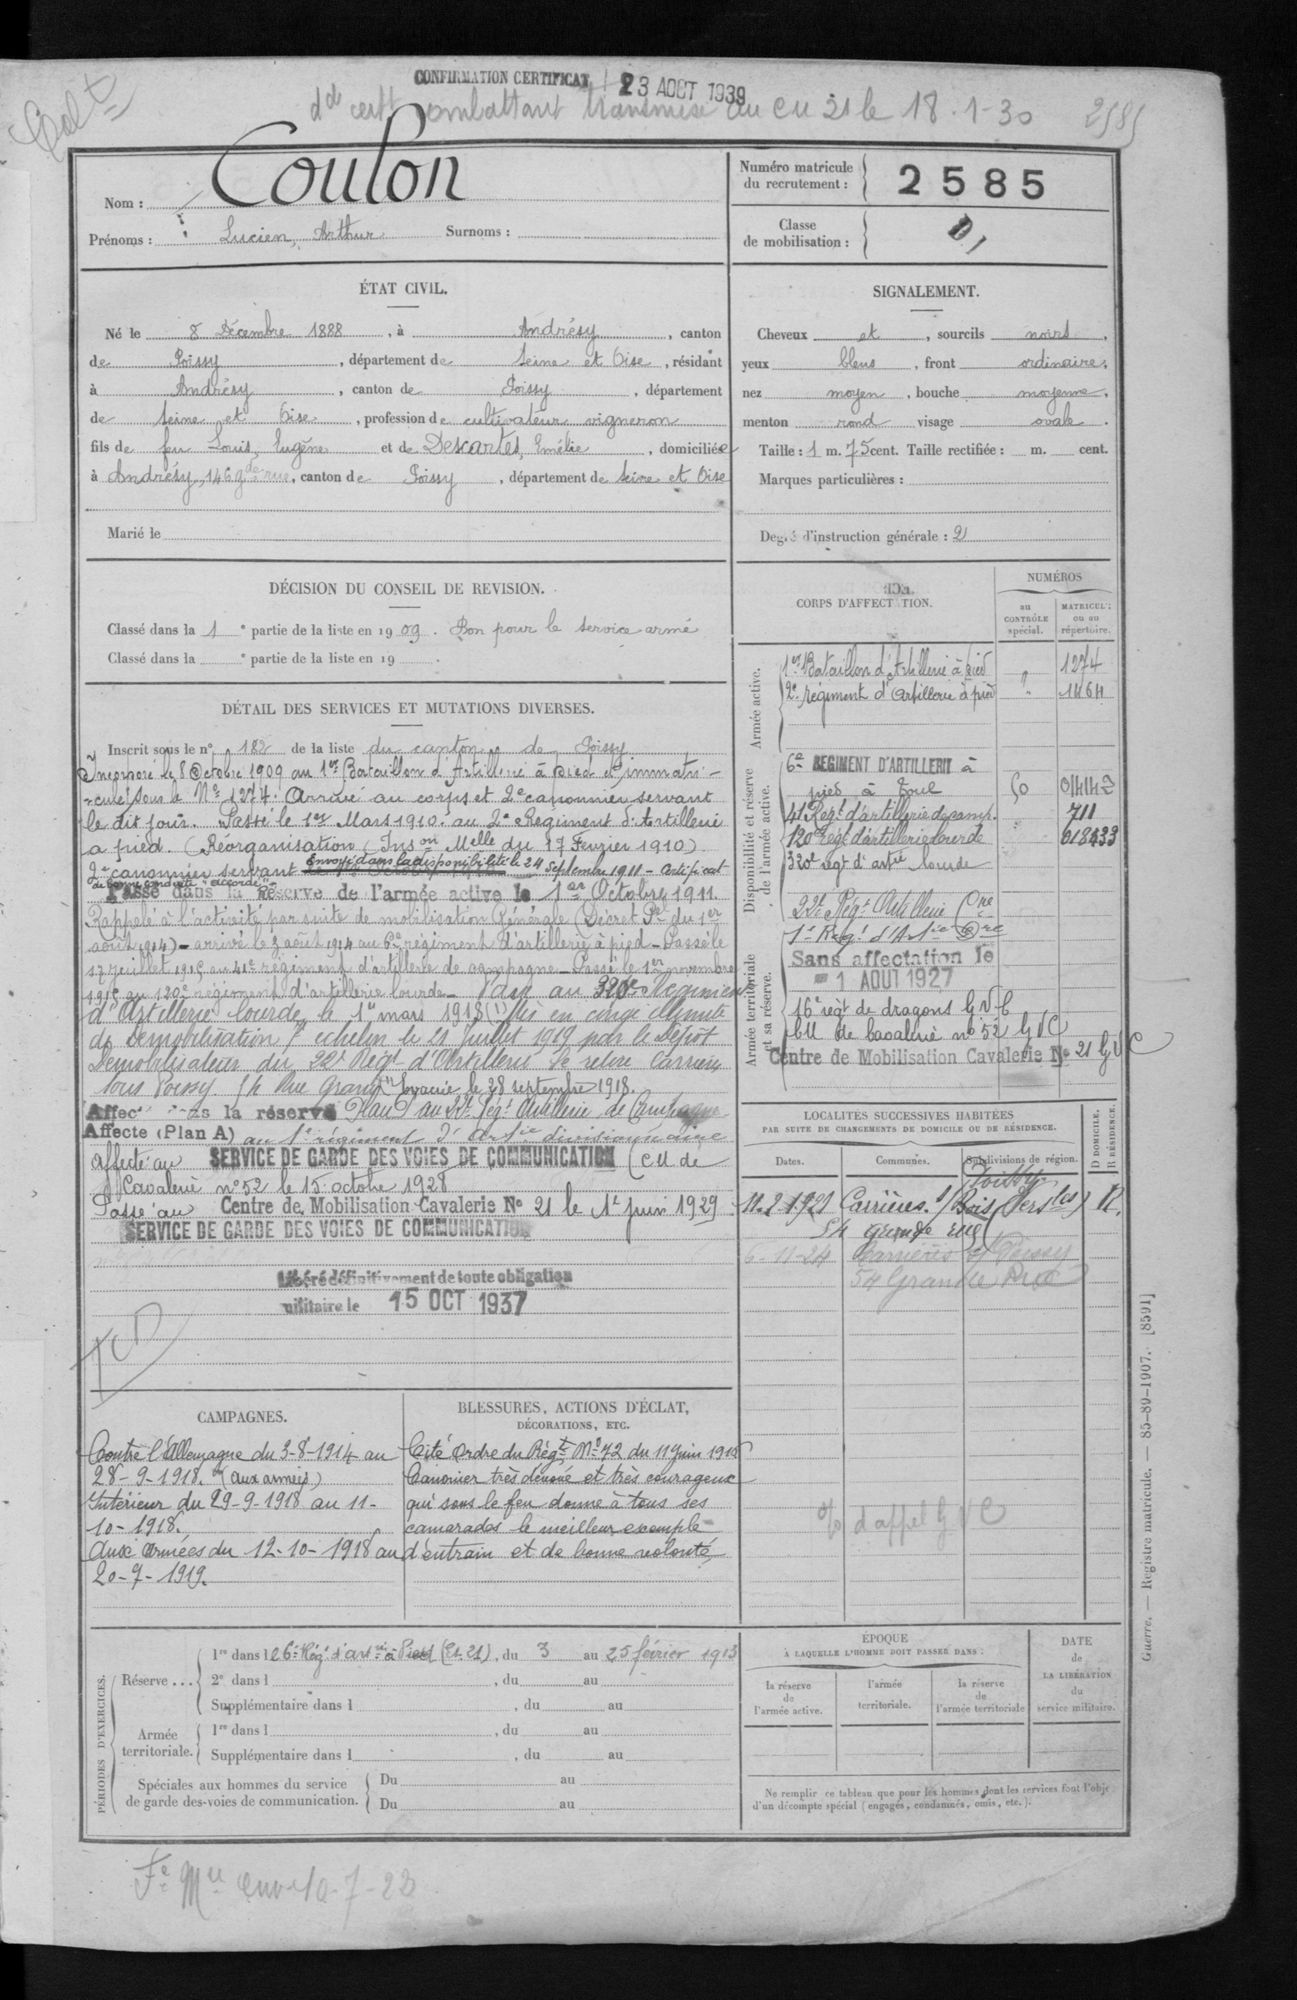 CONFIRMATION CERTIFICAT 23 AOUT 1939
combattant transmise au CM 21 le 18-1-30
2585
Nom : Coulon
Prénoms : Lucien, Arthur Surnoms :
Numéro matricule du recrutement : 2585
Classe de mobilisation :
ÉTAT CIVIL.
Né le 8 Décembre 1888, à Andrésy, canton
de Poissy, département de Seine et Oise, résidant
à Andrésy, canton de Poissy, département
de Seine et Oise, profession de cultivateur vigneron
fils de feu Louis, Eugène et de Descartes, Emélie, domiciliée
à Andrésy, 146 gde rue, canton de Poissy, département de Seine et Oise
Marié le
SIGNALEMENT.
Cheveux et, sourcils noirs,
yeux bleus, front ordinaire,
nez moyen, bouche moyenne,
menton rond visage ovale.
Taille : 1 m. 75 cent. Taille rectifiée : m. cent.
Marques particulières :
Degré d'instruction générale : 2
DÉCISION DU CONSEIL DE REVISION.
Classé dans la 1e partie de la liste en 1909. Bon pour le service armé
Classé dans la e partie de la liste en 19 .
DÉTAIL DES SERVICES ET MUTATIONS DIVERSES.
Inscrit sous le n° 182 de la liste du canton de Poissy
Incorporé le 8 Octobre 1909 au 1er Bataillon d'Artillerie à pied et immatri-
-culé sous le No 1274. Arrivé au corps et 2e canonnier servant
le dit jour. Passé le 1er Mars 1910 au 2e Régiment d'Artillerie
à pied. (Réorganisation (Inson Melle du 17 Fevrier 1910).
2e canonnier servant Envoyé dans la disponibilité le 24 Septembre 1911 - Certificat
de bonne conduite "accordé"
Passé dans la Réserve de l'armée active le 1er Octobre 1911
Rappelé à l'activité par suite de mobilisation Générale (Décret Pel du 1er
août 1914) - arrivé le 3 août 1914 au 6e régiment d'artillerie à pied - Passé le
17 juillet 1915 au 41e régiment d'artillerie de campagne - Passé le 1er novembre
1915 au 120e régiment d'artillerie lourde - Passé au 320e Régiment
d'Artillerie lourde le 1er mars 1918 (1) Mis en congé illimité
de Démobilisation 7e échelon le 21 Juillet 1919 par le Dépôt
Démobilisateur du 22e Régt d'Artillerie Se retire Carrières
sous Poissy. 54 Rue Grande (1) évacué le 28 septembre 1918.
Affecté dans la réserve Plan D au 22e Régt Artillerie de Campagne
Affecte (Plan A) au 1e régiment d'artie divisionnaire
Affecté au SERVICE DE GARDE DES VOIES DE COMMUNICATION (CM de
Cavalerie n°52 le 15 octobre 1928
Passé au Centre de Mobilisation Cavalerie No 21 le 1er juin 1929
SERVICE DE GARDE DES VOIES DE COMMUNICATION
Libéré définitivement de toute obligation
militaire le 15 OCT 1937
CORPS D'AFFECTATION.
NUMÉROS
au CONTRÔLE spécial.
MATRICULE ou au répertoire.
Armée active.
1er Bataillon d'Artillerie à pied " 1274
2e régiment d'Artillerie à pied " 1464
Disponibilité et réserve de l'armée active.
6e REGIMENT D'ARTILLERIE à
pied à Toul
41 Regt d'artillerie de camp. 711
120e Regt d'artillerie lourde 618433
320e régt d'artie lourde
22e Régt Artillerie Cne
Armée territoriale et sa réserve.
Sans affectation le
1 AOUT 1927
16e régt de dragons GVC
CM de Cavalerie n°52 GVC
Centre de Mobilisation Cavalerie No 21 GVC
LOCALITÉS SUCCESSIVES HABITÉES
PAR SUITE DE CHANGEMENTS DE DOMICILE OU DE RÉSIDENCE.
Dates. Communes. Subdivisions de région. D DOMICILE. R RÉSIDENCE.
Poissy
11-2-1921 Carrières s/ Bois (Versles) R.
54 grande rue
6-11-24 Carrières s/ Poissy
54 Grande Rue
d'appel GVC
CAMPAGNES.
Contre l'Allemagne du 3-8-1914 au
28-9-1918. (aux armées)
Intérieur du 29-9-1918 au 11-
10-1918.
Aux Armées du 12-10-1918 au
20-7-1919.
BLESSURES, ACTIONS D'ÉCLAT,
DÉCORATIONS, ETC.
Cité Ordre du Régt No 72 du 11 juin 1918
Canonier très dévoué et très courageux
qui sous le feu donne à tous ses
camarades le meilleur exemple
d'entrain et de bonne volonté
PÉRIODES D'EXERCICES.
Réserve ... 1re dans l e 6e Rég. d'art. à Pied (Et. 21), du 3 au 25 février 1913
2e dans l , du au
Supplémentaire dans l , du au
Armée territoriale. 1re dans l , du au
Supplémentaire dans l , du au
Spéciales aux hommes du service de garde des voies de communication. Du au
Du au
ÉPOQUE
À LAQUELLE L'HOMME DOIT PASSER DANS :
la réserve de l'armée active.
l'armée territoriale.
la réserve de l'armée territoriale
DATE de LA LIBÉRATION du service militaire.
Ne remplir ce tableau que pour les hommes dont les services font l'objet
d'un décompte spécial (engagés, condamnés, omis, etc.).
Guerre. — Registre matricule. — 85-89-1907. [8591]
10-7-23